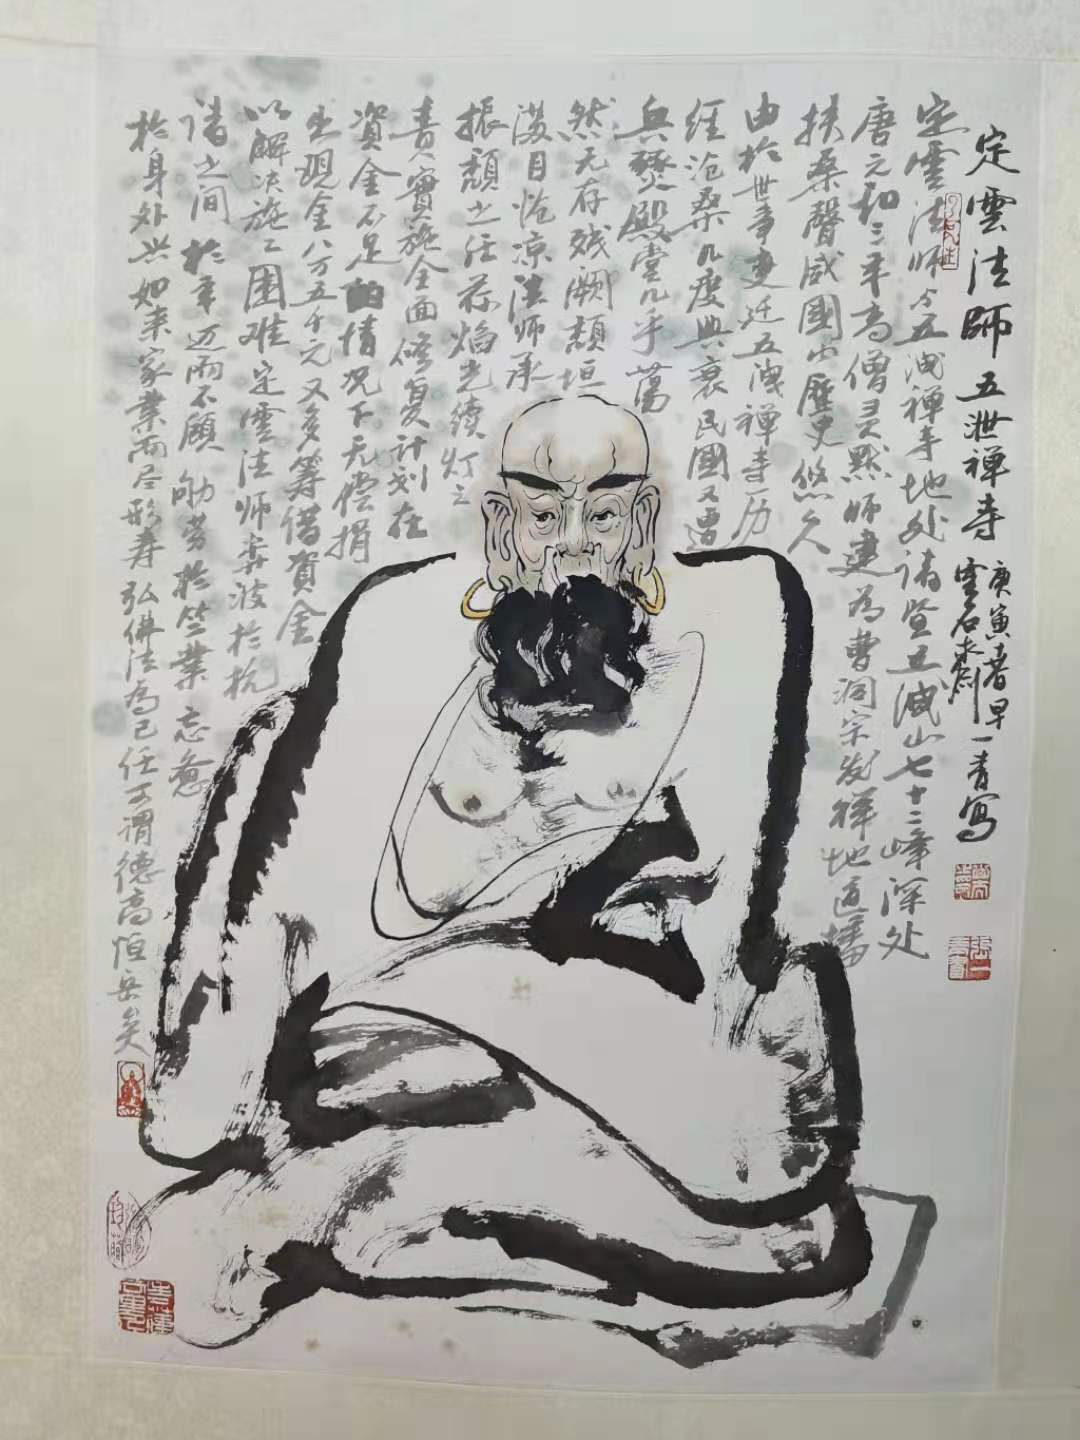 定雲法師五泄禅寺
庚寅春早一青写
雲石斋
定雲法师今五洩禅寺地处诸暨五洩山七十二峰深处
唐元和三年高僧灵默师建为曹洞宗发祥地道播
扶桑聲威國内歷史悠久
由於世事变迁五洩禅寺历
经沧桑几度興衰民國又遭
兵燹殿堂几乎蕩
然无存残阙頹垣
满目沧凉法师承
振頹之任荷焰光續灯之
责實施全面修复计划在
资金不足的情况下无偿捐
出现金八万五千元又多筹借資金
以解决施工困难定雲法师奔波於杭
诸之间於年迈而不顾劬劳於竺業忘愈
於身外此如来家業而尽形寿弘佛法為己任可謂德高恒岳矣